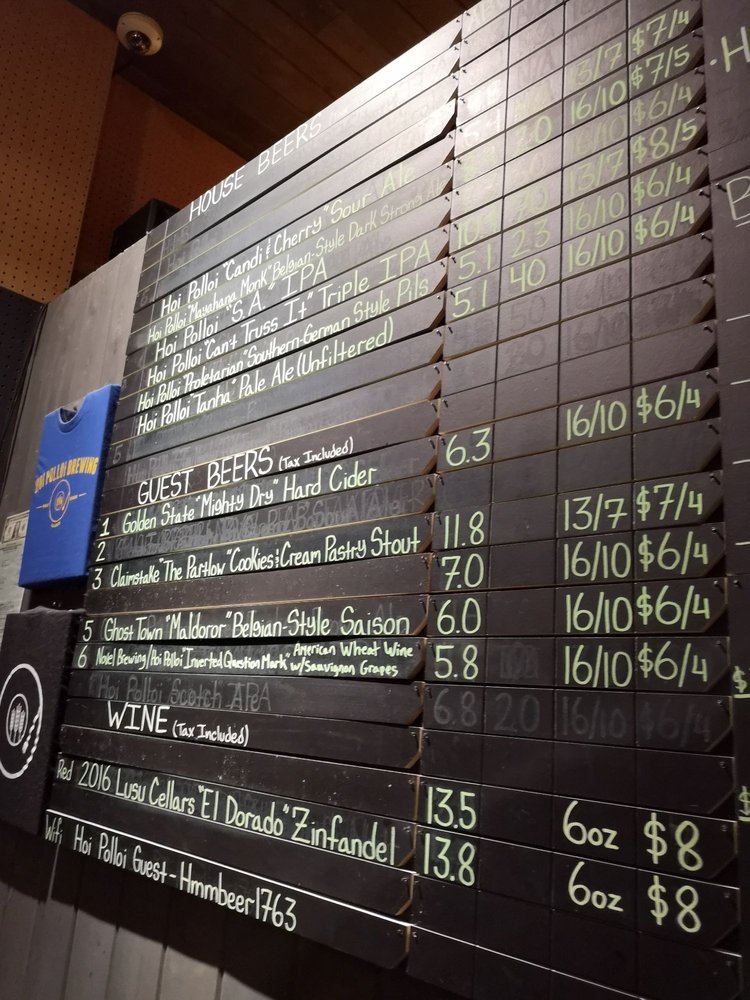 HOUSE BEERS
$7/4
13/7 $7/5
16/10 $6/4
16/10 $8/5
Hoi Polloi "Candi & Cherry" Sour Ale
13/7 $6/4
Hoi Polloi "Mayahana Monk" Belgian-Style Dark Strong Ale
16/10 $6/4
Hoi Polloi "S.A." IPA
5.1 23 16/10
Hoi Polloi "Can't Truss It" Triple IPA
5.1 40
Hoi Polloi "Proletarian" Southern-German Style Pils
Hoi Polloi "Tanha" Pale Ale (Unfiltered)
GUEST BEERS (Tax Included)
6.3 16/10 $6/4
1 Golden State "Mighty Dry" Hard Cider
2
11.8 13/7 $7/4
3 Claimstake "The Partlow" Cookies & Cream Pastry Stout
7.0 16/10 $6/4
5 Ghost Town "Maldoror" Belgian-Style Saison
6.0 16/10 $6/4
6 Novel Brewing/Hoi Polloi "Inverted Question Mark" American Wheat Wine w/Sauvignon Grapes
5.8 16/10 $6/4
Hoi Polloi Scotch Ale
6.8 20 16/10 $6/4
WINE (Tax Included)
13.5 6oz $8
Red 2016 Lusu Cellars "El Dorado" Zinfandel
13.8 6oz $8
Wifi Hoi Polloi Guest - Hmmbeer1763
HOI POLLOI BREWING